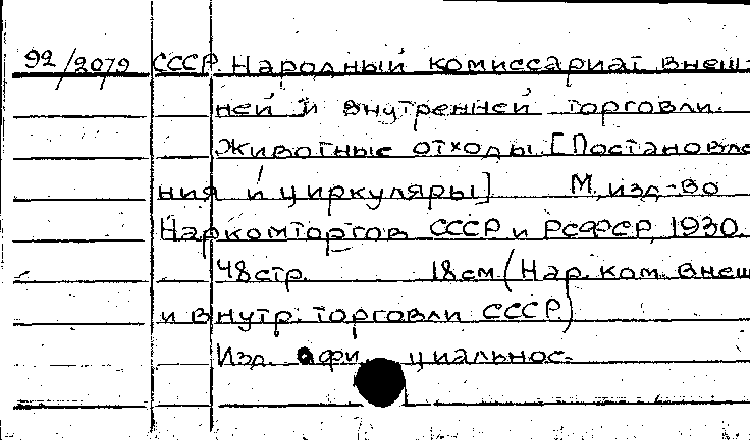 92/2079 СССР. Народный комиссариат внеш-
ней и внутренней торговли.
Животные отходы. [Постановле
ния и циркуляры] М, изд-во
Наркомторгов СССР и РСФСР, 1930.
48стр. 18см (Нар. ком. внеш
и внутр. торговли СССР)
Изд. афи циальнос.